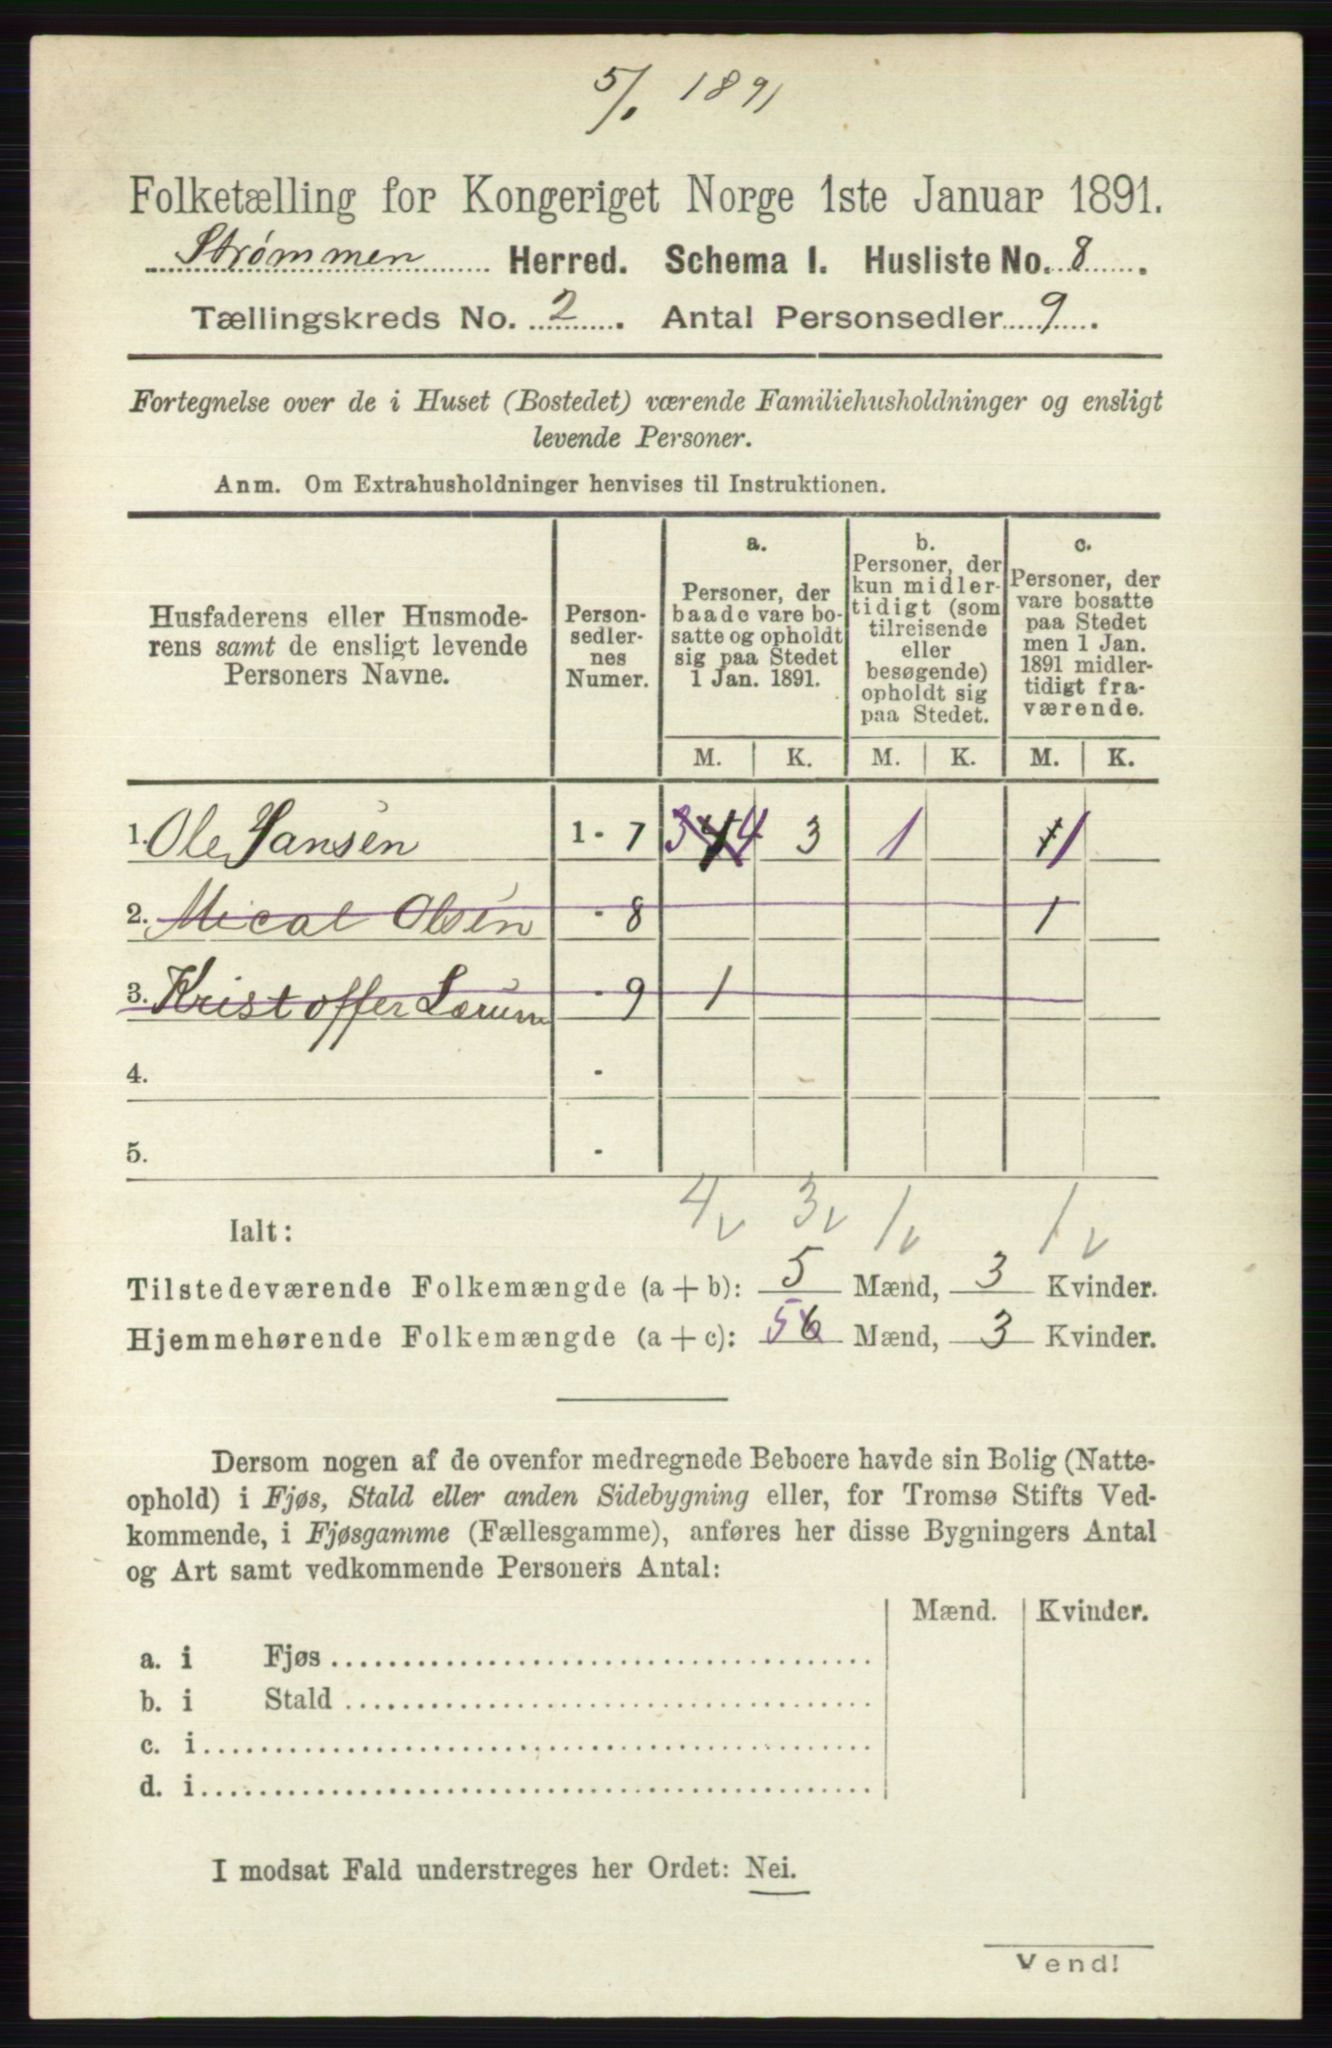 5/1 1891
Folketælling for Kongeriget Norge 1ste Januar 1891.
Strømmen Herred. Schema I. Husliste No. 8.
Tællingskreds No. 2. Antal Personsedler 9.
Fortegnelse over de i Huset (Bostedet) værende Familiehusholdninger og ensligt
levende Personer.
Anm. Om Extrahusholdninger henvises til Instruktionen.
Husfaderens eller Husmode-
rens samt de ensligt levende
Personers Navne.
Person-
sedler-
nes
Numer.
a.
Personer, der
baade vare bo-
satte og opholdt
sig paa Stedet
1 Jan. 1891.
b.
Personer, der
kun midler-
tidigt (som
tilreisende
eller
besøgende)
opholdt sig
paa Stedet.
c.
Personer, der
vare bosatte
paa Stedet
men 1 Jan.
1891 midler-
tidigt fra-
værende.
M. K. M. K. M. K.
1. Ole Hansen 1 - 7 4 3 1 1
2. Mical Olsen - 8 1
3. Kristoffer Lærum - 9 1
4. -
5. -
4 3 1 1
Ialt:
Tilstedeværende Folkemængde (a + b): 5 Mænd, 3 Kvinder.
Hjemmehørende Folkemængde (a + c): 5 6 Mænd, 3 Kvinder.
Dersom nogen af de ovenfor medregnede Beboere havde sin Bolig (Natte-
ophold) i Fjøs, Stald eller anden Sidebygning eller, for Tromsø Stifts Ved-
kommende, i Fjøsgamme (Fællesgamme), anføres her disse Bygningers Antal
og Art samt vedkommende Personers Antal:
Mænd. Kvinder.
a. i Fjøs
b. i Stald
c. i
d. i
I modsat Fald understreges her Ordet: Nei.
Vend!